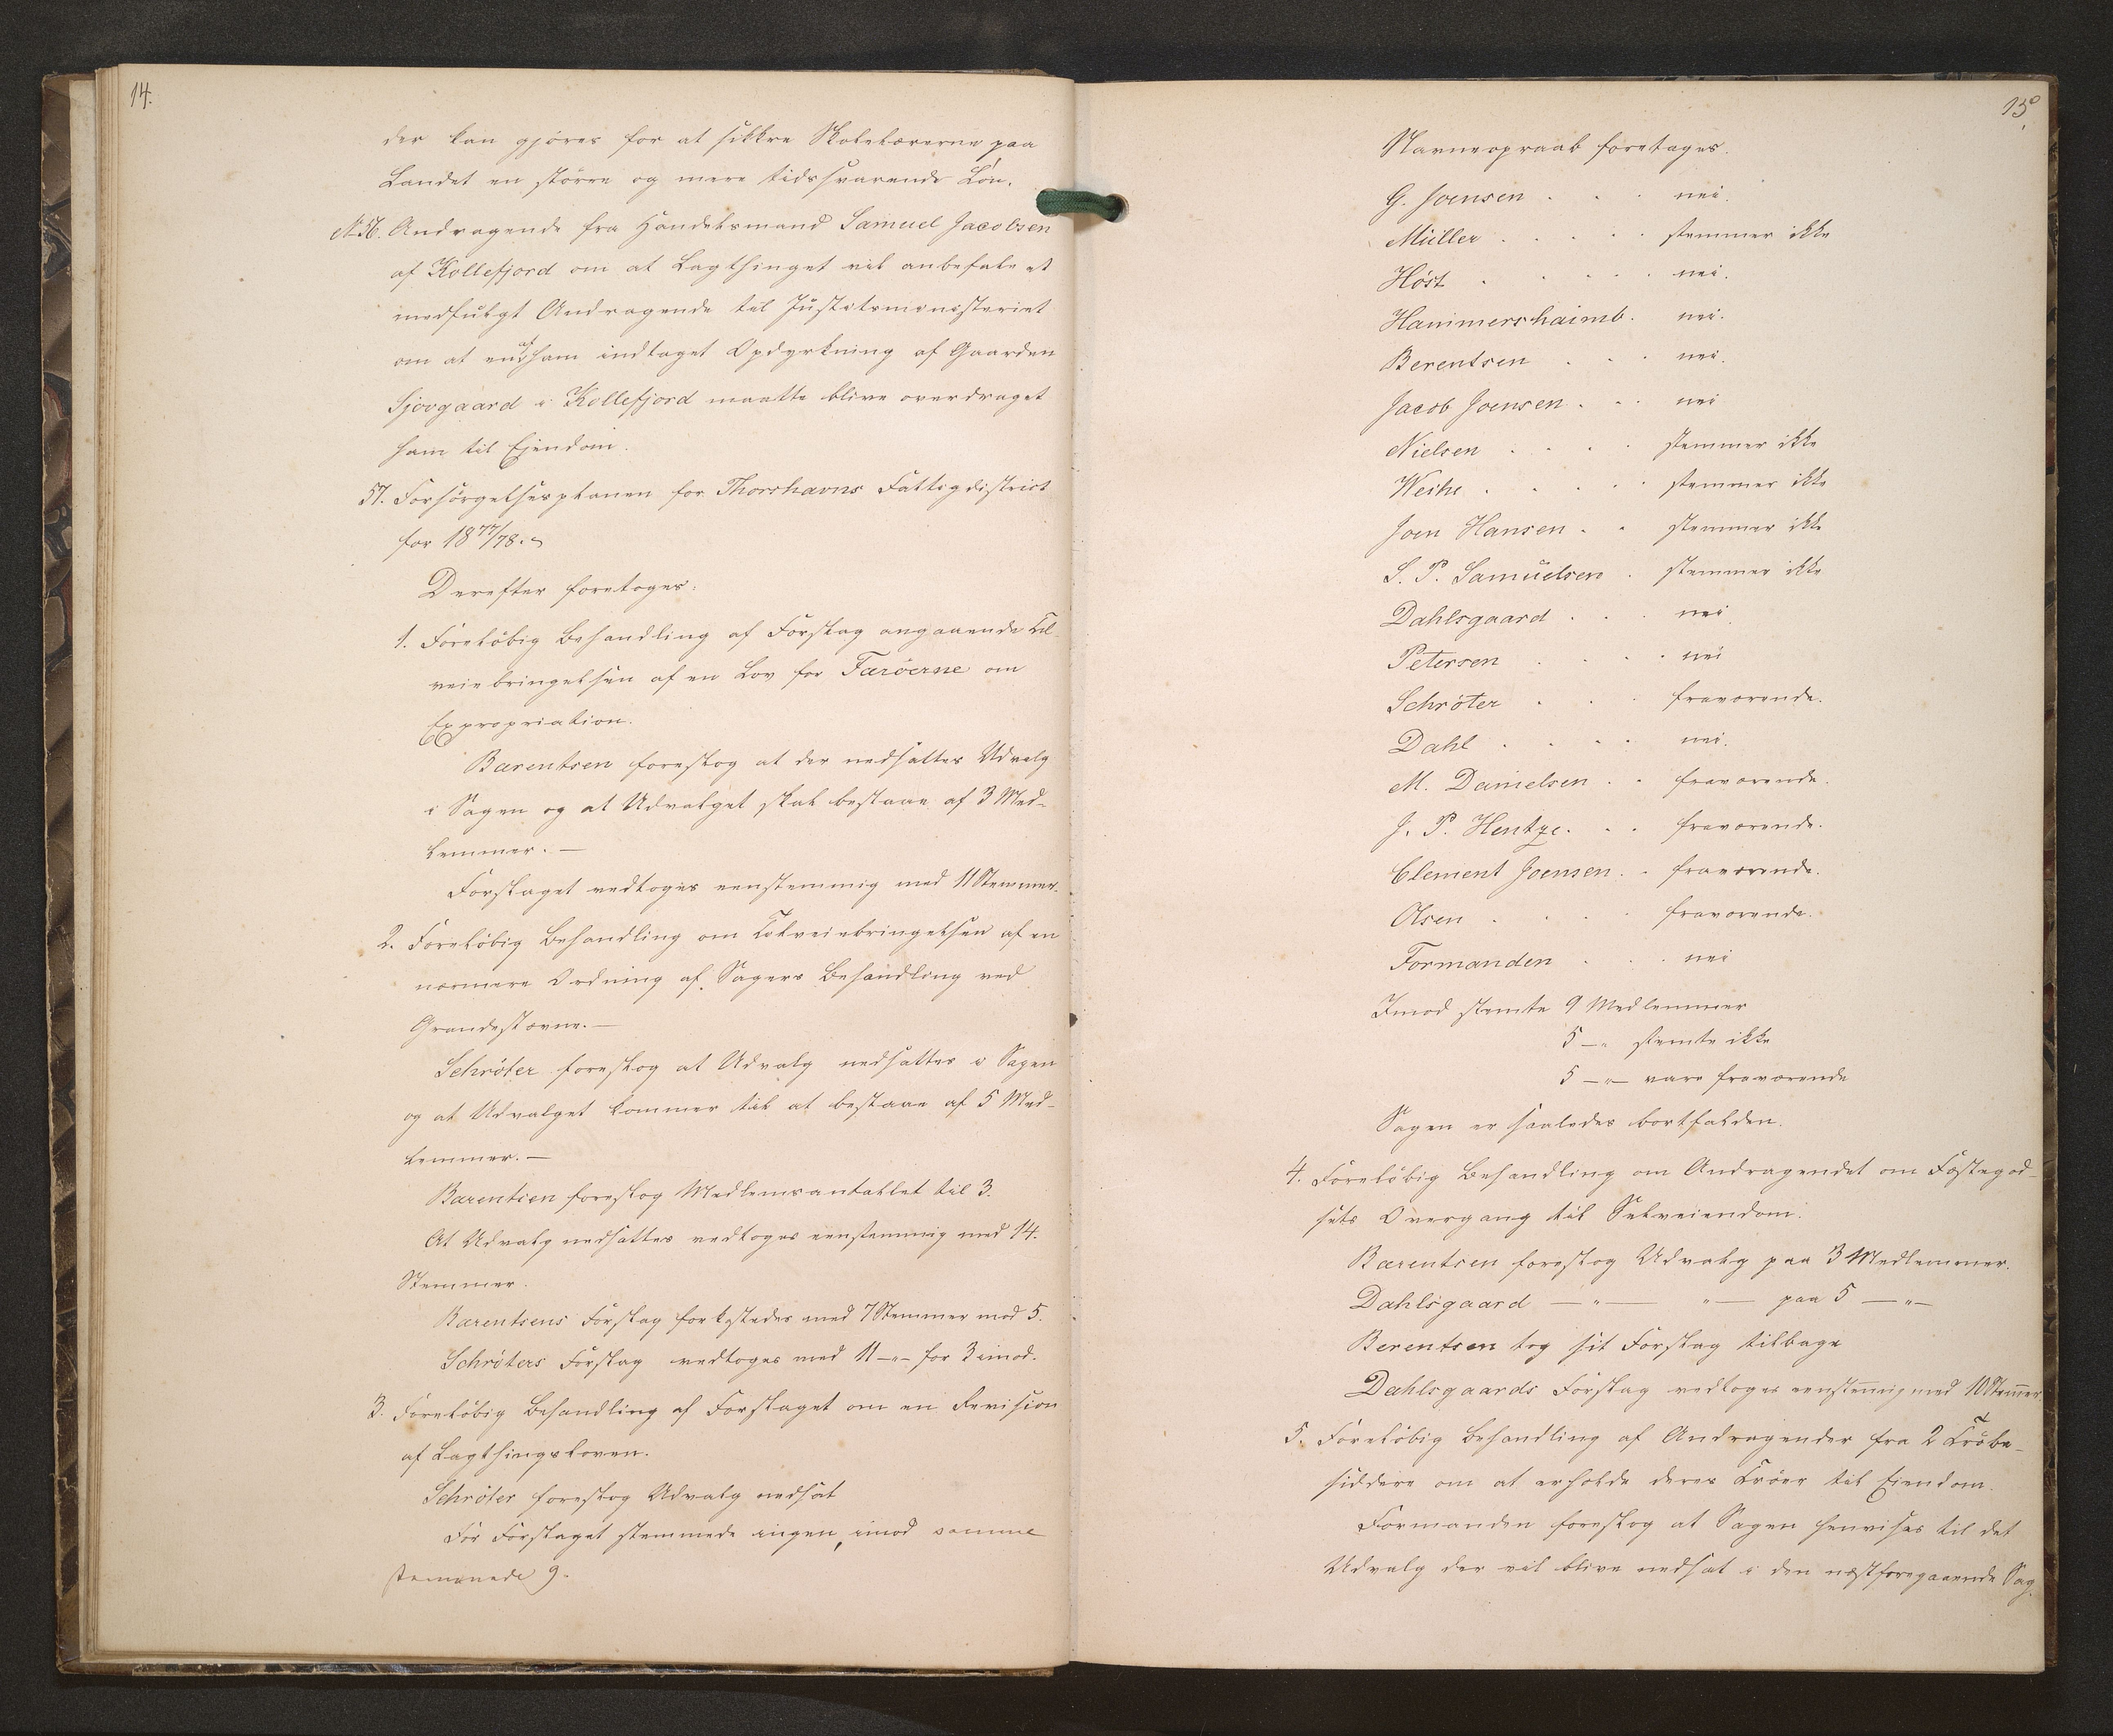 14.
der kan gjøres for at sikkre Skolelærerne paa
Landet en større og mere tidssvarende Løn.
No 56. Andragende fra Handelsmand Samuel Jacobsen
af Kollefjord om at Lagthinget vil anbefale et
medfulgt Andragende til Justitsministeriet
om at en af ham indtaget Opdyrkning af Gaarden
Sjovgaard i Kollefjord maatte blive overdraget
ham til Ejendom.
57. Forsørgelsesplanen for Thorshavns Fattigdistrict
for 1877/78.
Derefter foretoges:
1. Foreløbig Behandling af Forslag angaaende Til-
veiebringelsen af en Lov for Færøerne om
Expropriation.
Bærentsen foreslog at der nedsattes Udvalg
i Sagen og at Udvalget skal bestaae af 3 Med-
lemmer. —
Forslaget vedtoges eenstemmig med 11 Stemmer.
2. Foreløbig Behandling om Tilveiebringelsen af en
nærmere Ordning af Sagers Behandling ved
Grandestævne. —
Schrøter foreslog at Udvalg nedsattes i Sagen
og at Udvalget kommer til at bestaae af 5 Med-
lemmer. —
Bærentsen foreslog Medlemsantallet til 3.
At Udvalg nedsattes vedtoges eenstemmig med 14.
Stemmer.
Bærentsens Forslag forkastedes med 7 Stemmer mod 5.
Schrøters Forslag vedtoges med 11 —"— for 3 imod.
3. Foreløbig Behandling af Forslaget om en Revision
af Lagthingsloven.
Schrøter foreslog Udvalg nedsat
For Forslaget stemmede ingen, imod samme
stemmede 9.
15.
Navneopraab foretages.
G. Joensen . . . nei.
Müller . . . . . stemmer ikke
Høst . . . . . nei.
Hammershaimb . nei.
Berentsen . . . nei.
Jacob Joensen . . . nei
Nielsen . . . . stemmer ikke
Weihe . . . . . stemmer ikke
Joen Hansen . . stemmer ikke
S. P. Samuelsen . stemmer ikke
Dahlsgaard . . . nei.
Petersen . . . . nei
Schrøter . . . fraværende.
Dahl . . . . . nei.
M. Danielsen . . fraværende.
J. P. Hentze . . . fraværende.
Clement Joensen . . fraværende.
Olsen . . . . fraværende.
Formanden . . . nei
Imod stemte 9 Medlemmer
5 —"— stemte ikke
5 —"— vare fraværende
Sagen er saaledes bortfalden.
4. Foreløbig Behandling om Andragendet om Fæstegod-
sets Overgang til Selveiendom.
Bærentsen foreslog Udvalg paa 3 Medlemmer.
Dahlsgaard —"— "— paa 5 —"—
Berentsen tog sit Forslag tilbage
Dahlsgaards Forslag vedtoges eenstemmig med 10 Stemmer.
5. Foreløbig Behandling af Andragender fra 2 Trøbe-
siddere om at erholde deres Trøer til Eiendom.
Formanden foreslog at Sagen henvises til det
Udvalg der vil blive nedsat i den næstforegaaende Sag.